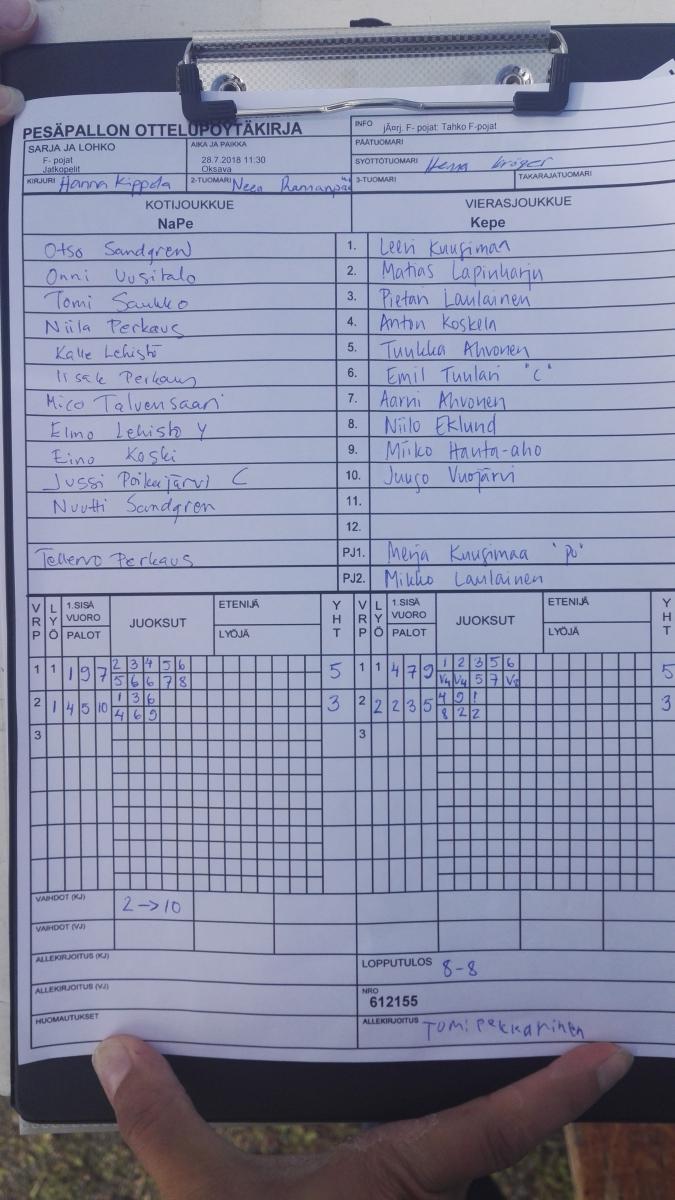 PESÄPALLON OTTELUPÖYTÄKIRJA
INFO jÃ¤rj. F- pojat: Tahko F-pojat
SARJA JA LOHKO
F- pojat
Jatkopelit
AIKA JA PAIKKA
28.7.2018 11:30
Oksava
PÄÄTUOMARI
SYÖTTÖTUOMARI Henna Kröger
KIRJURI Hanna Kippola
2-TUOMARI Neea
3-TUOMARI
TAKARAJATUOMARI
KOTIJOUKKUE
NaPe
VIERASJOUKKUE
Kepe
Otso Sandgren 1. Leevi Kuusimaa
Onni Uusitalo 2. Matias Lapinharju
Tomi Saukko 3. Pietari Laulainen
Niila Perkaus 4. Anton Koskela
Kalle Lehistö 5. Tuukka Ahvonen
Iisak Perkaus 6. Emil Tuulari "C"
Mico Talvensaari 7. Aarni Ahvonen
Elmo Lehistö Y 8. Niilo Eklund
Eino Koski 9. Miiko Hauta-aho
Jussi Poikajärvi C 10. Juuso Vuojärvi
Nuutti Sandgren 11.
12.
Tellervo Perkaus PJ1. Merja Kuusimaa "PJ"
PJ2. Mikko Laulainen
VRP LYÖ 1.SISÄ VUORO PALOT JUOKSUT ETENIJÄ LYÖJÄ YHT VRP LYÖ 1.SISÄ VUORO PALOT JUOKSUT ETENIJÄ LYÖJÄ YHT
1 1 1 9 7 2 3 4 5 6 5 1 1 4 7 9 1 2 3 5 6 5
5 6 6 7 8 V4 V4 5 7 V8
2 1 4 5 10 1 3 6 3 2 2 2 3 5 4 9 1 3
4 6 9 8 2 2
3 3
VAIHDOT (KJ) 2→10
VAIHDOT (VJ)
ALLEKIRJOITUS (KJ) LOPPUTULOS 8-8
ALLEKIRJOITUS (VJ) NRO 612155
HUOMAUTUKSET ALLEKIRJOITUS Tomi Pekkarinen